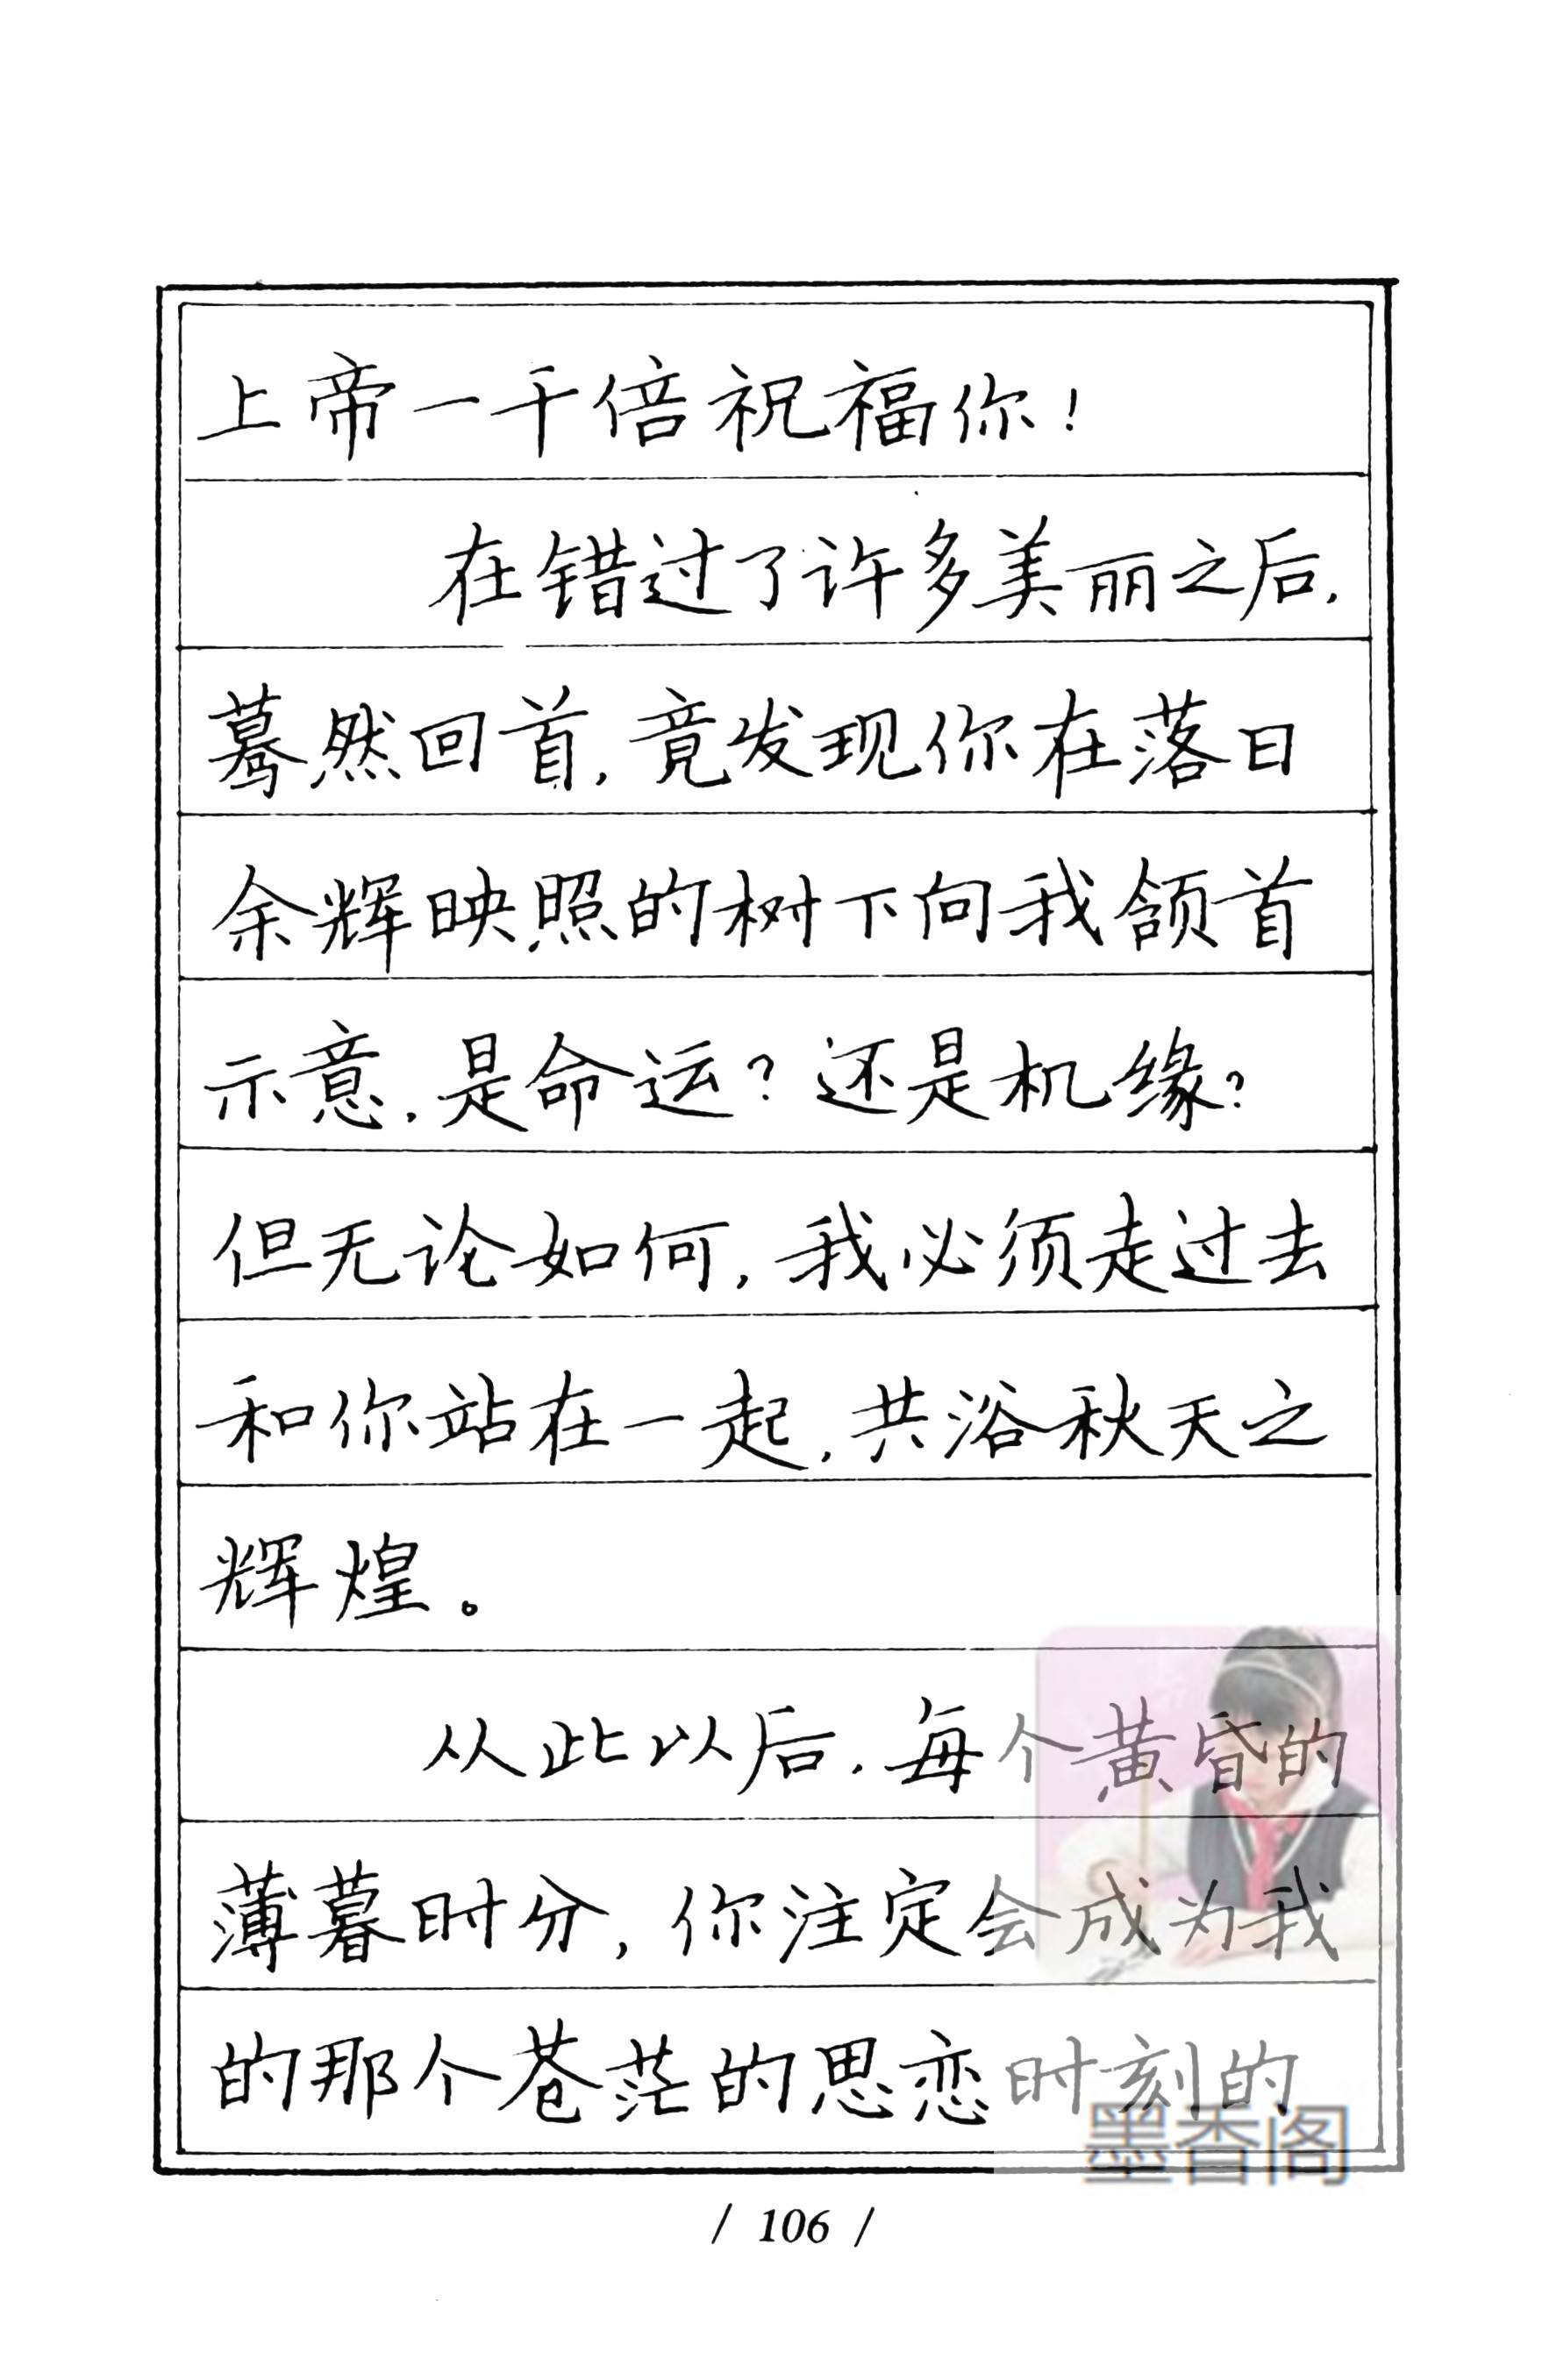 上帝一千倍祝福你！
在错过了许多美丽之后，
蓦然回首，竟发现你在落日
余辉映照的树下向我颔首
示意，是命运？还是机缘？
但无论如何，我必须走过去
和你站在一起，共浴秋天之
辉煌。
从此以后，每个黄昏的
薄暮时分，你注定会成为我
的那个苍茫的思恋时刻的
墨香阁
/ 106 /